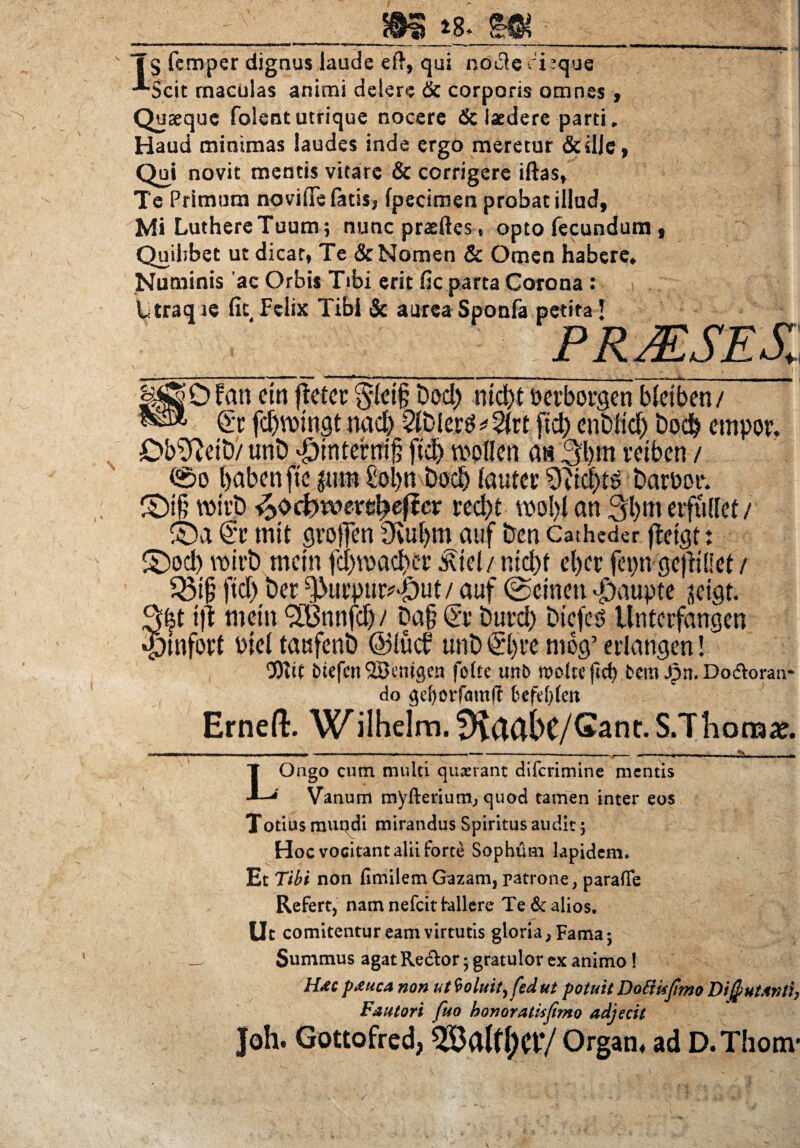 28.
IS semper dignus laude est, qui nocte dieque
Scit maculas animi delere & corporis omnes,
Quæque solent utrique nocere & lædere parti.
Haud minimas laudes inde ergo meretur & ille,
Qui novit mentis vitare & corrigere istas,
Te Primum novisse satis, specimen probat illud,
Mi Luthere Tuum; nunc præstes, opto secundum,
Quilibet ut dicat, Te & Nomen & Omen habere.
Numinis ac Orbis Tibi erit sic parta Corona:
Utraque sit, Felix Tibi & aurea Sponsa petita!
PRÆSES.
SO kan ein steter Fleiß doch nicht verborgen bleiben/
Er schwingt nach Adlers-Art sich endlich doch empor.
Ob Neid/ und Hinterniß sich wollen an Ihm reiben/
So haben sie zum Lohn doch lauter Nichts darvor.
Diß wird Hochwerthester recht wohl an Ihm erfüllet/
Da Er mit grossen Ruhm auf den Catheder steigt:
Doch wird mein schwacher Kiel/ nicht eher seyn gestillet/
Biß sich der Purpur-Hut/ auf Seinen Haupte zeigt.
Itzt ist mein Wunsch/ daß Er durch dieses Unterfangen
Hinfort viel tausend Glück und Ehre mög' erlangen!
Mit diesen Wenigen solte und wolte sich dem Hn. Doctoran-
do gehorsamst befehlen
Ernest. Wilhelm. Raabe/ Cant. S. Thomæ.
LOngo cum multi quærant discrimine mentis
Vanum mysterium, quod tamen inter eos
Totius mundi mirandus Spiritus audit;
Hoc vocitant alii forte Sophûm lapidem.
Et Tibi non similem Gazam, patrone, parasse
Refert, nam nescit fallere Te & alios.
Ut comitentur eam virtutis gloria, Fama;
Summus agat Rector; gratulor ex animo!
Hæc pauca non ut voluit, sed ut potuit Doctissimo Disputanti,
Fautori suo honoratissimo adjecit
Joh. Gottofred, Walther/ Organ. ad D. Thom-